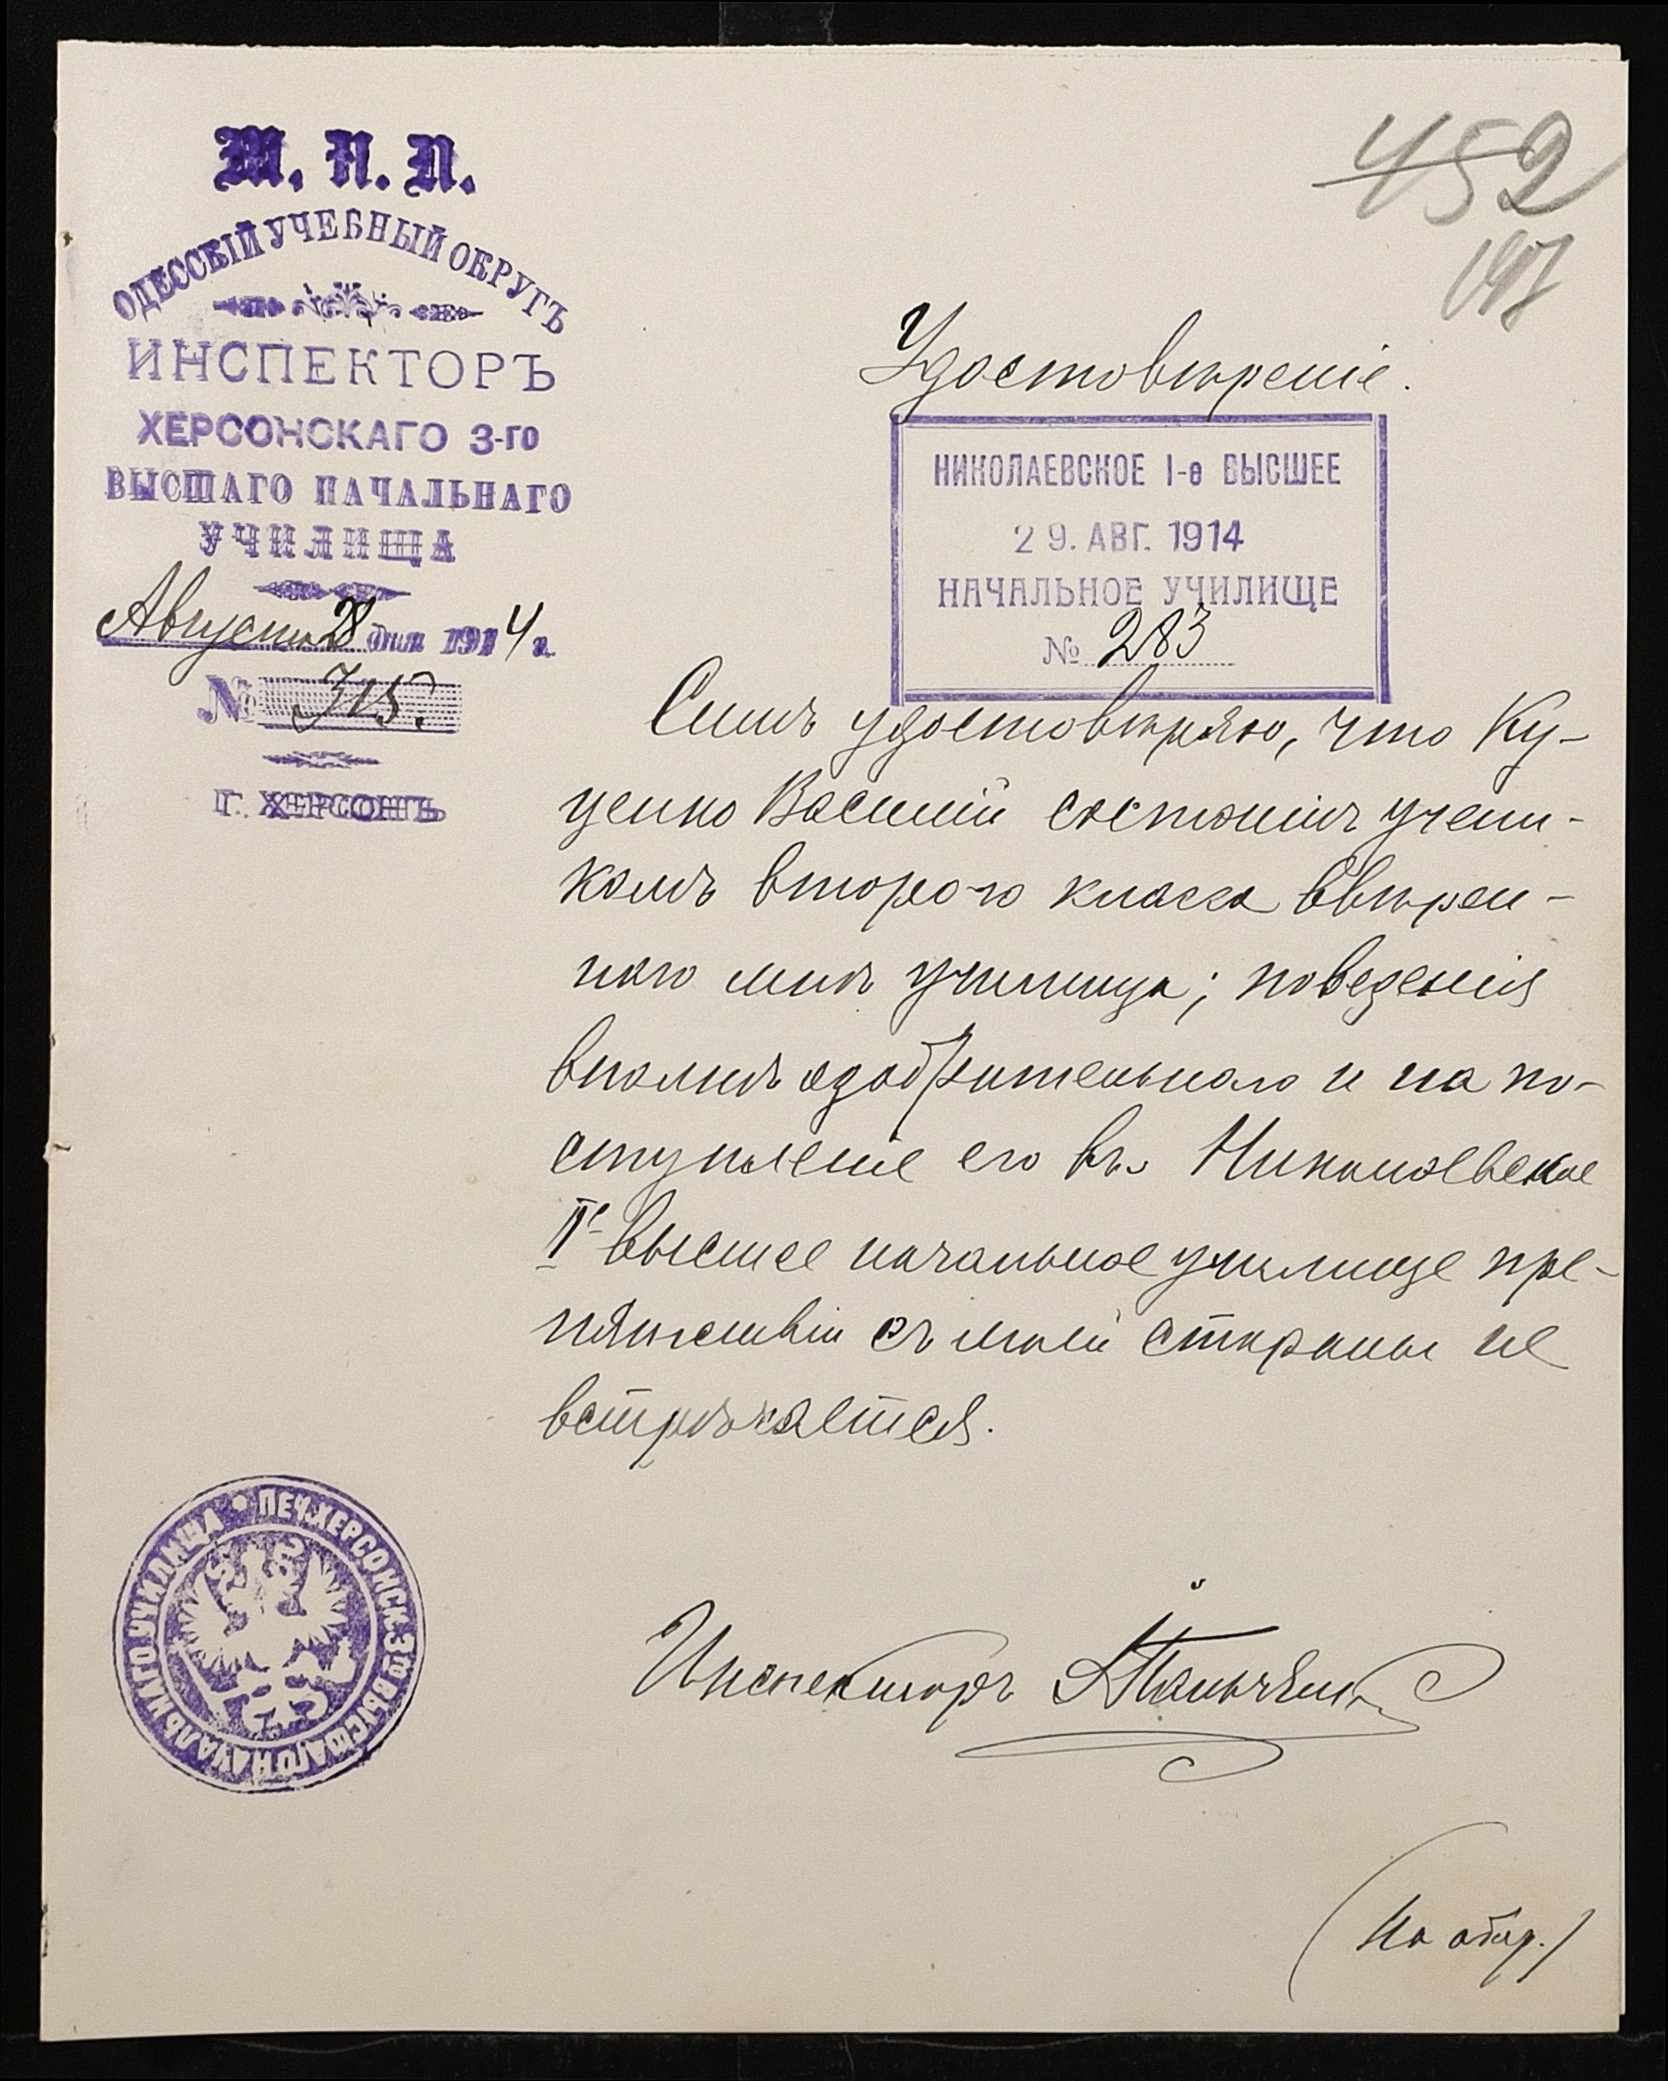 М. Н. П.
ОДЕССКІЙ УЧЕБНЫЙ ОКРУГЪ
ИНСПЕКТОРЪ
ХЕРСОНСКАГО 3-ГО
ВЫСШАГО НАЧАЛЬНАГО
УЧИЛИЩА
Августа 28 дня 1914 г.
№ 315.
Г. ХЕРСОНЪ
452
197
Удостовѣреніе.
НИКОЛАЕВСКОЕ 1-е ВЫСШЕЕ
29. АВГ. 1914
НАЧАЛЬНОЕ УЧИЛИЩЕ
№ 283
Симъ удостовѣряю, что Ку-
ценко Василій состоитъ учени-
комъ второго класса ввѣрен-
наго мнѣ училища; поведенія
вполнѣ одобрительнаго и на по-
ступленіе его въ Николаевское
Iе высшее начальное училище пре-
пятствій съ моей стороны не
встрѣчается.
ПЕЧ. ХЕРСОНСК. 3го ВЫСШАГО НАЧАЛЬНАГО УЧИЛИЩА
Инспекторъ
(На обор.)